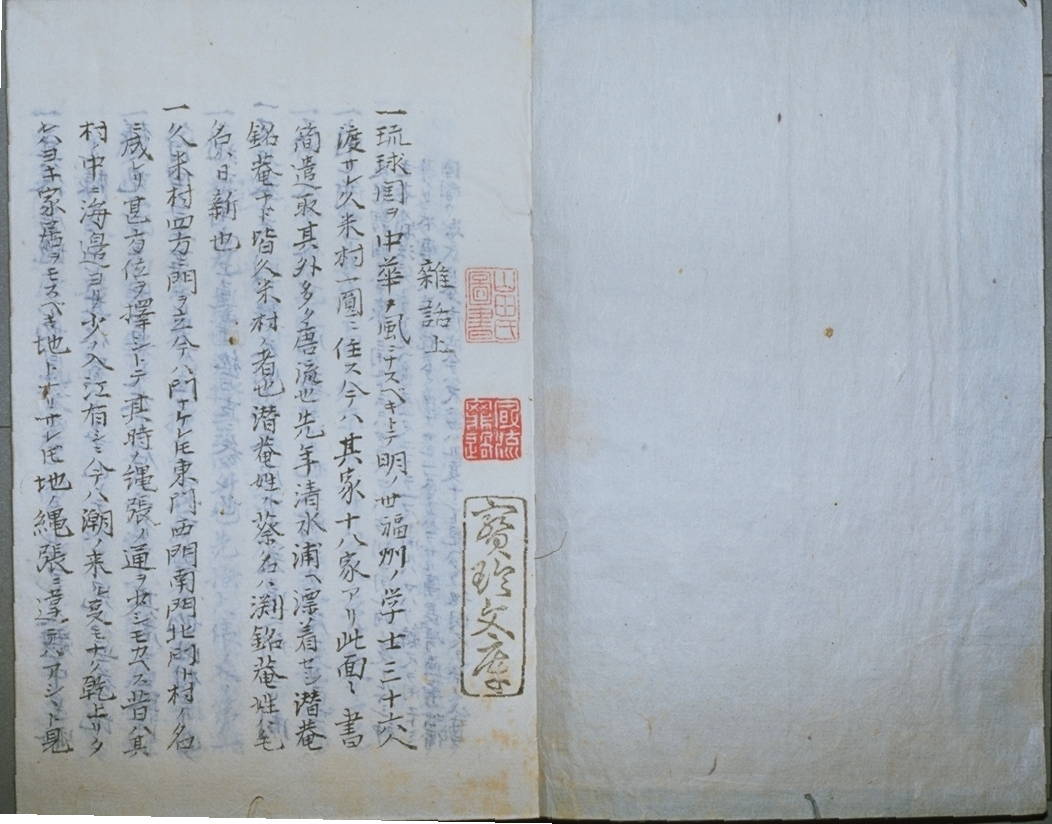 山田氏
圖書
寳玲文庫
雜話上
一琉球国ヲ中華ノ風ニナスベキトテ明ノ世福州ノ学士三十六人
渡サレ久米村一圓ニ住ス今ハ其家十八家アリ此面々書
簡遣取其外多ク唐流也先年清水浦ヘ漂着セシ潜菴
銘菴ナド皆久米村ノ者也潜菴姓ハ蔡名ハ渕銘菴姓ハ毛
名ハ日新也
一久米村四方ニ門ヲ立今ハ門ナケレ𪜈東門西門南門北門ト村ノ名
ニ成レリ甚方位ヲ擇シトテ其時ノ縄張ノ通ヲ少シモカヘス昔ハ其
村ノ中ニ海邉ヨリ少ノ入江有シニ今ハ潮ノ来ル夏モナク乾上リタ
ヨキ家居ヲモスベキ地トナリサレ𪜈地ノ縄張ニ違アシント見